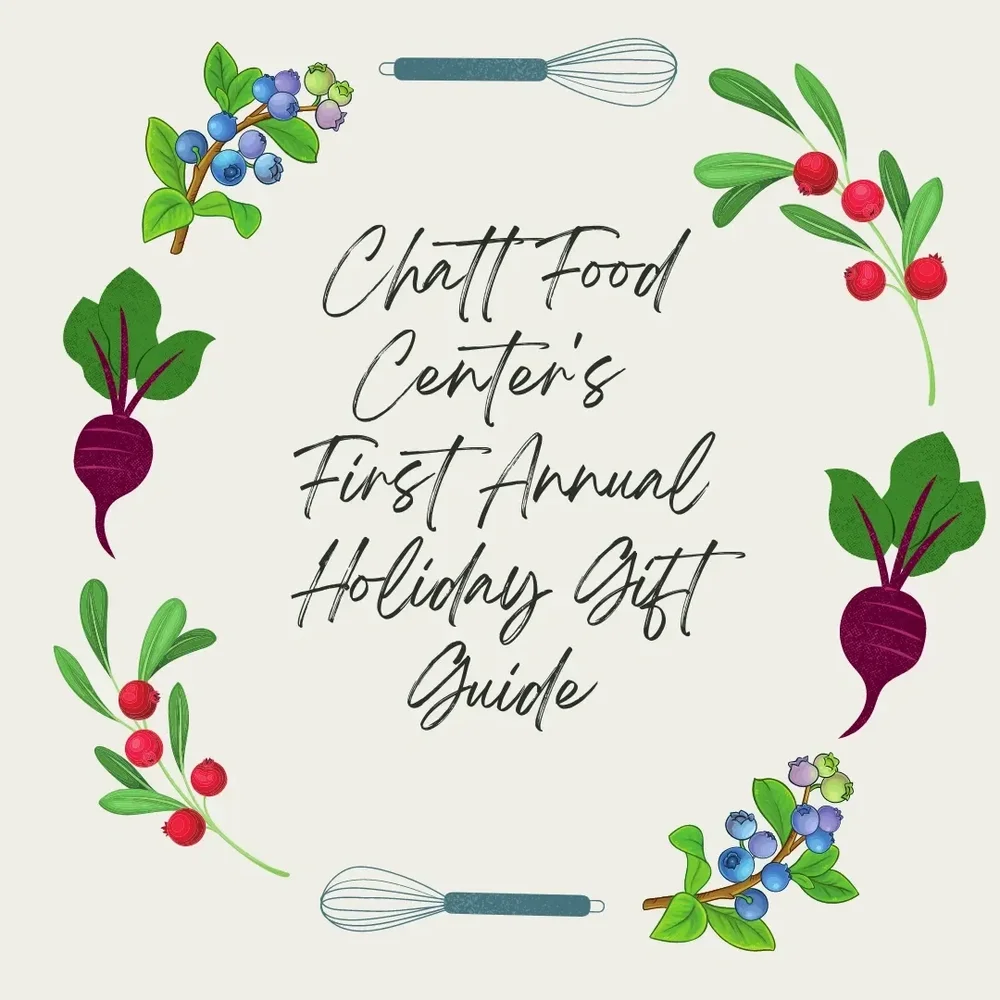 Chatt Food
Center's
First Annual
Holiday Gift
Guide